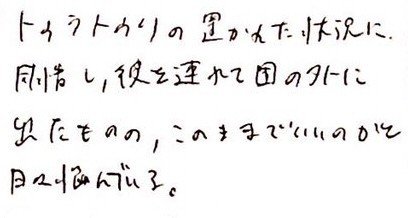 トゥラトゥリの置かれた状況に
同情し,彼を連れて国の外に
出たものの,このままでいいのかと
日々悩んでいる。